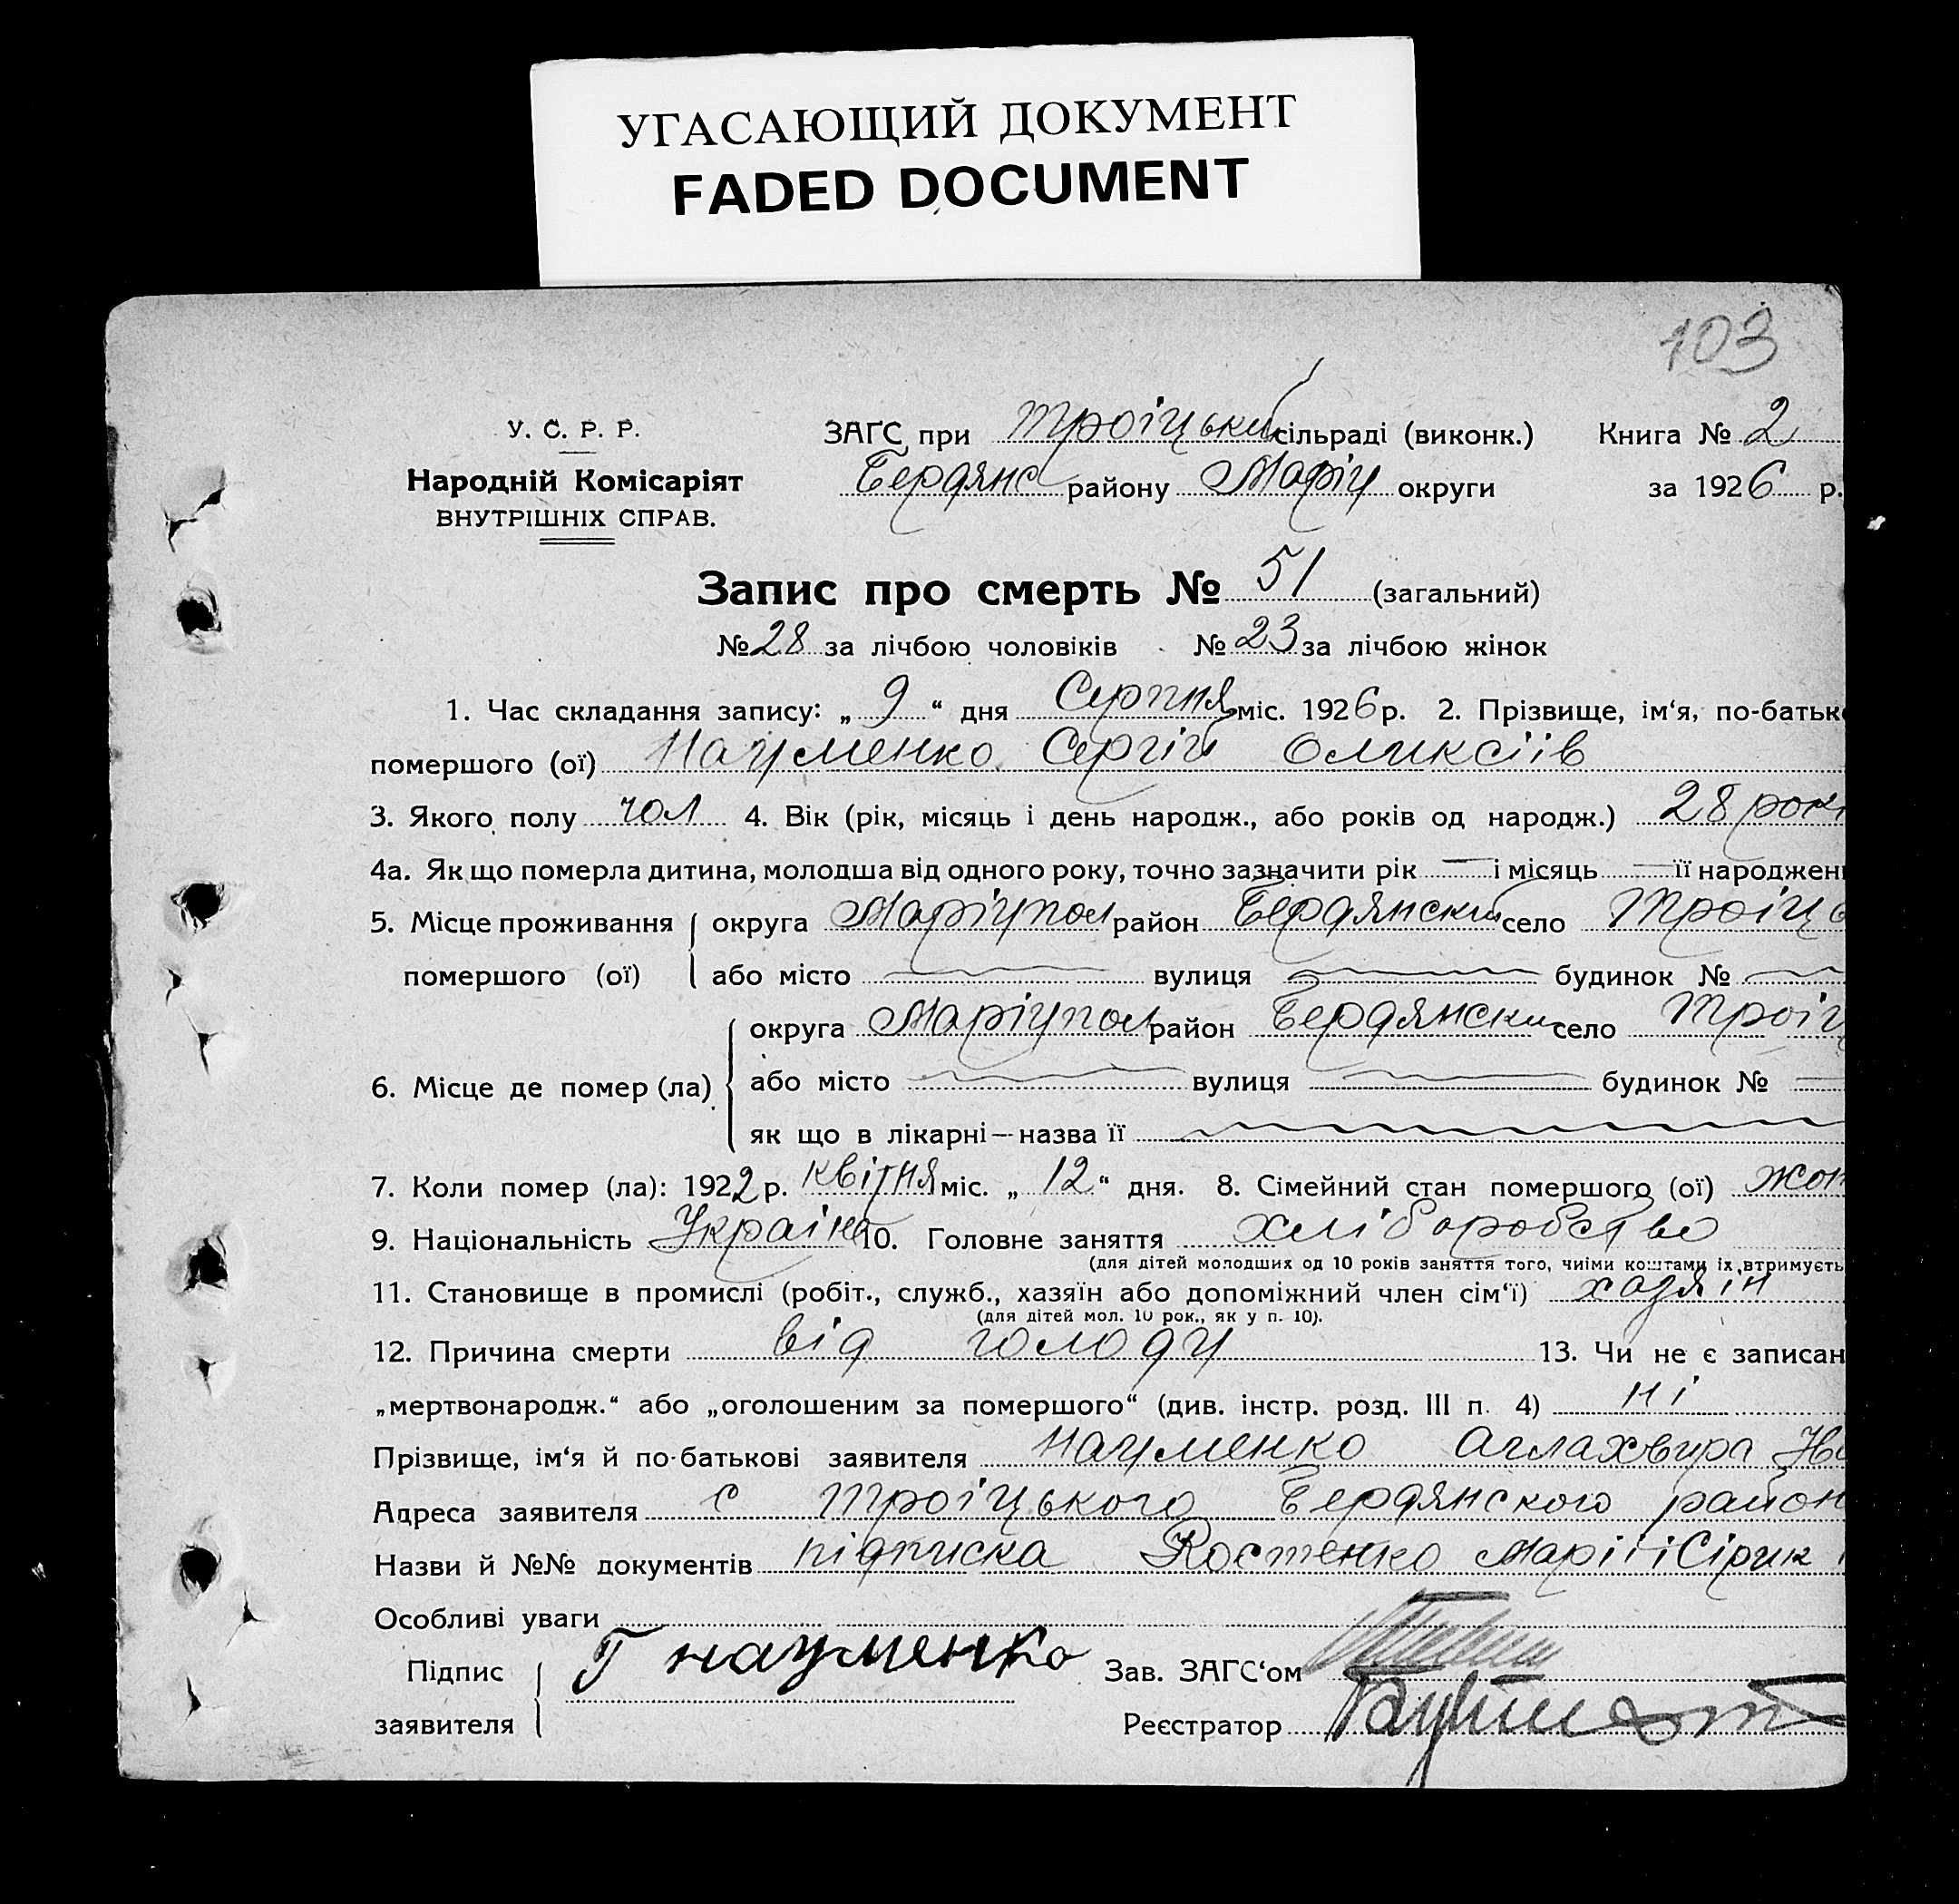 УГАСАЮЩИЙ ДОКУМЕНТ
FADED DOCUMENT
103
У. С. Р. Р.
Народній Комісаріят
ВНУТРІШНІХ СПРАВ.
ЗАГС при Троіцький сільраді (виконк.) Книга № 2
Бердянс району Маріу округи за 1926 р.
Запис про смерть № 51 (загальний)
№ 28 за лічбою чоловіків № 23 за лічбою жінок
1. Час складання запису: „ 9 “ дня Серпня міс. 1926 р. 2. Прізвище, ім‘я, по-батьк
помершого (ої) Науменко Сергій Оликсіів
3. Якого полу чол 4. Вік (рік, місяць і день народж., або років од народж.) 28 рок
4а. Як що померла дитина, молодша від одного року, точно зазначити рік — і місяць — її народжен
5. Місце проживання помершого (ої) округа Маріупол район Бердянски село Троіць
або місто вулиця будинок №
6. Місце де помер (ла) округа Маріупол район Бердянски село Троіц
або місто вулиця будинок №
як що в лікарні—назва її
7. Коли помер (ла): 1922 р. квітня міс. „ 12 “ дня. 8. Сімейний стан помершого (ої) жон
9. Національність Украін 10. Головне заняття хліборобство
(для дітей молодших од 10 років заняття того, чиїми коштами їх втримуєть
11. Становище в промислі (робіт., служб., хазяїн або допоміжний член сім‘ї) хазяін
(для дітей мол. 10 рок., як у п. 10).
12. Причина смерти від голоду 13. Чи не є записан
„мертвонародж.“ або „оголошеним за помершого“ (див. інстр. розд. III п. 4) ні
Прізвище, ім‘я й по-батькові заявителя Науменко
Адреса заявителя с Троіцького Бердянского район
Назви й №№ документів підписка Костенко Маріі і Сірик
Особливі уваги
Підпис заявителя Г Науменко Зав. ЗАГС‘ом
Реєстратор